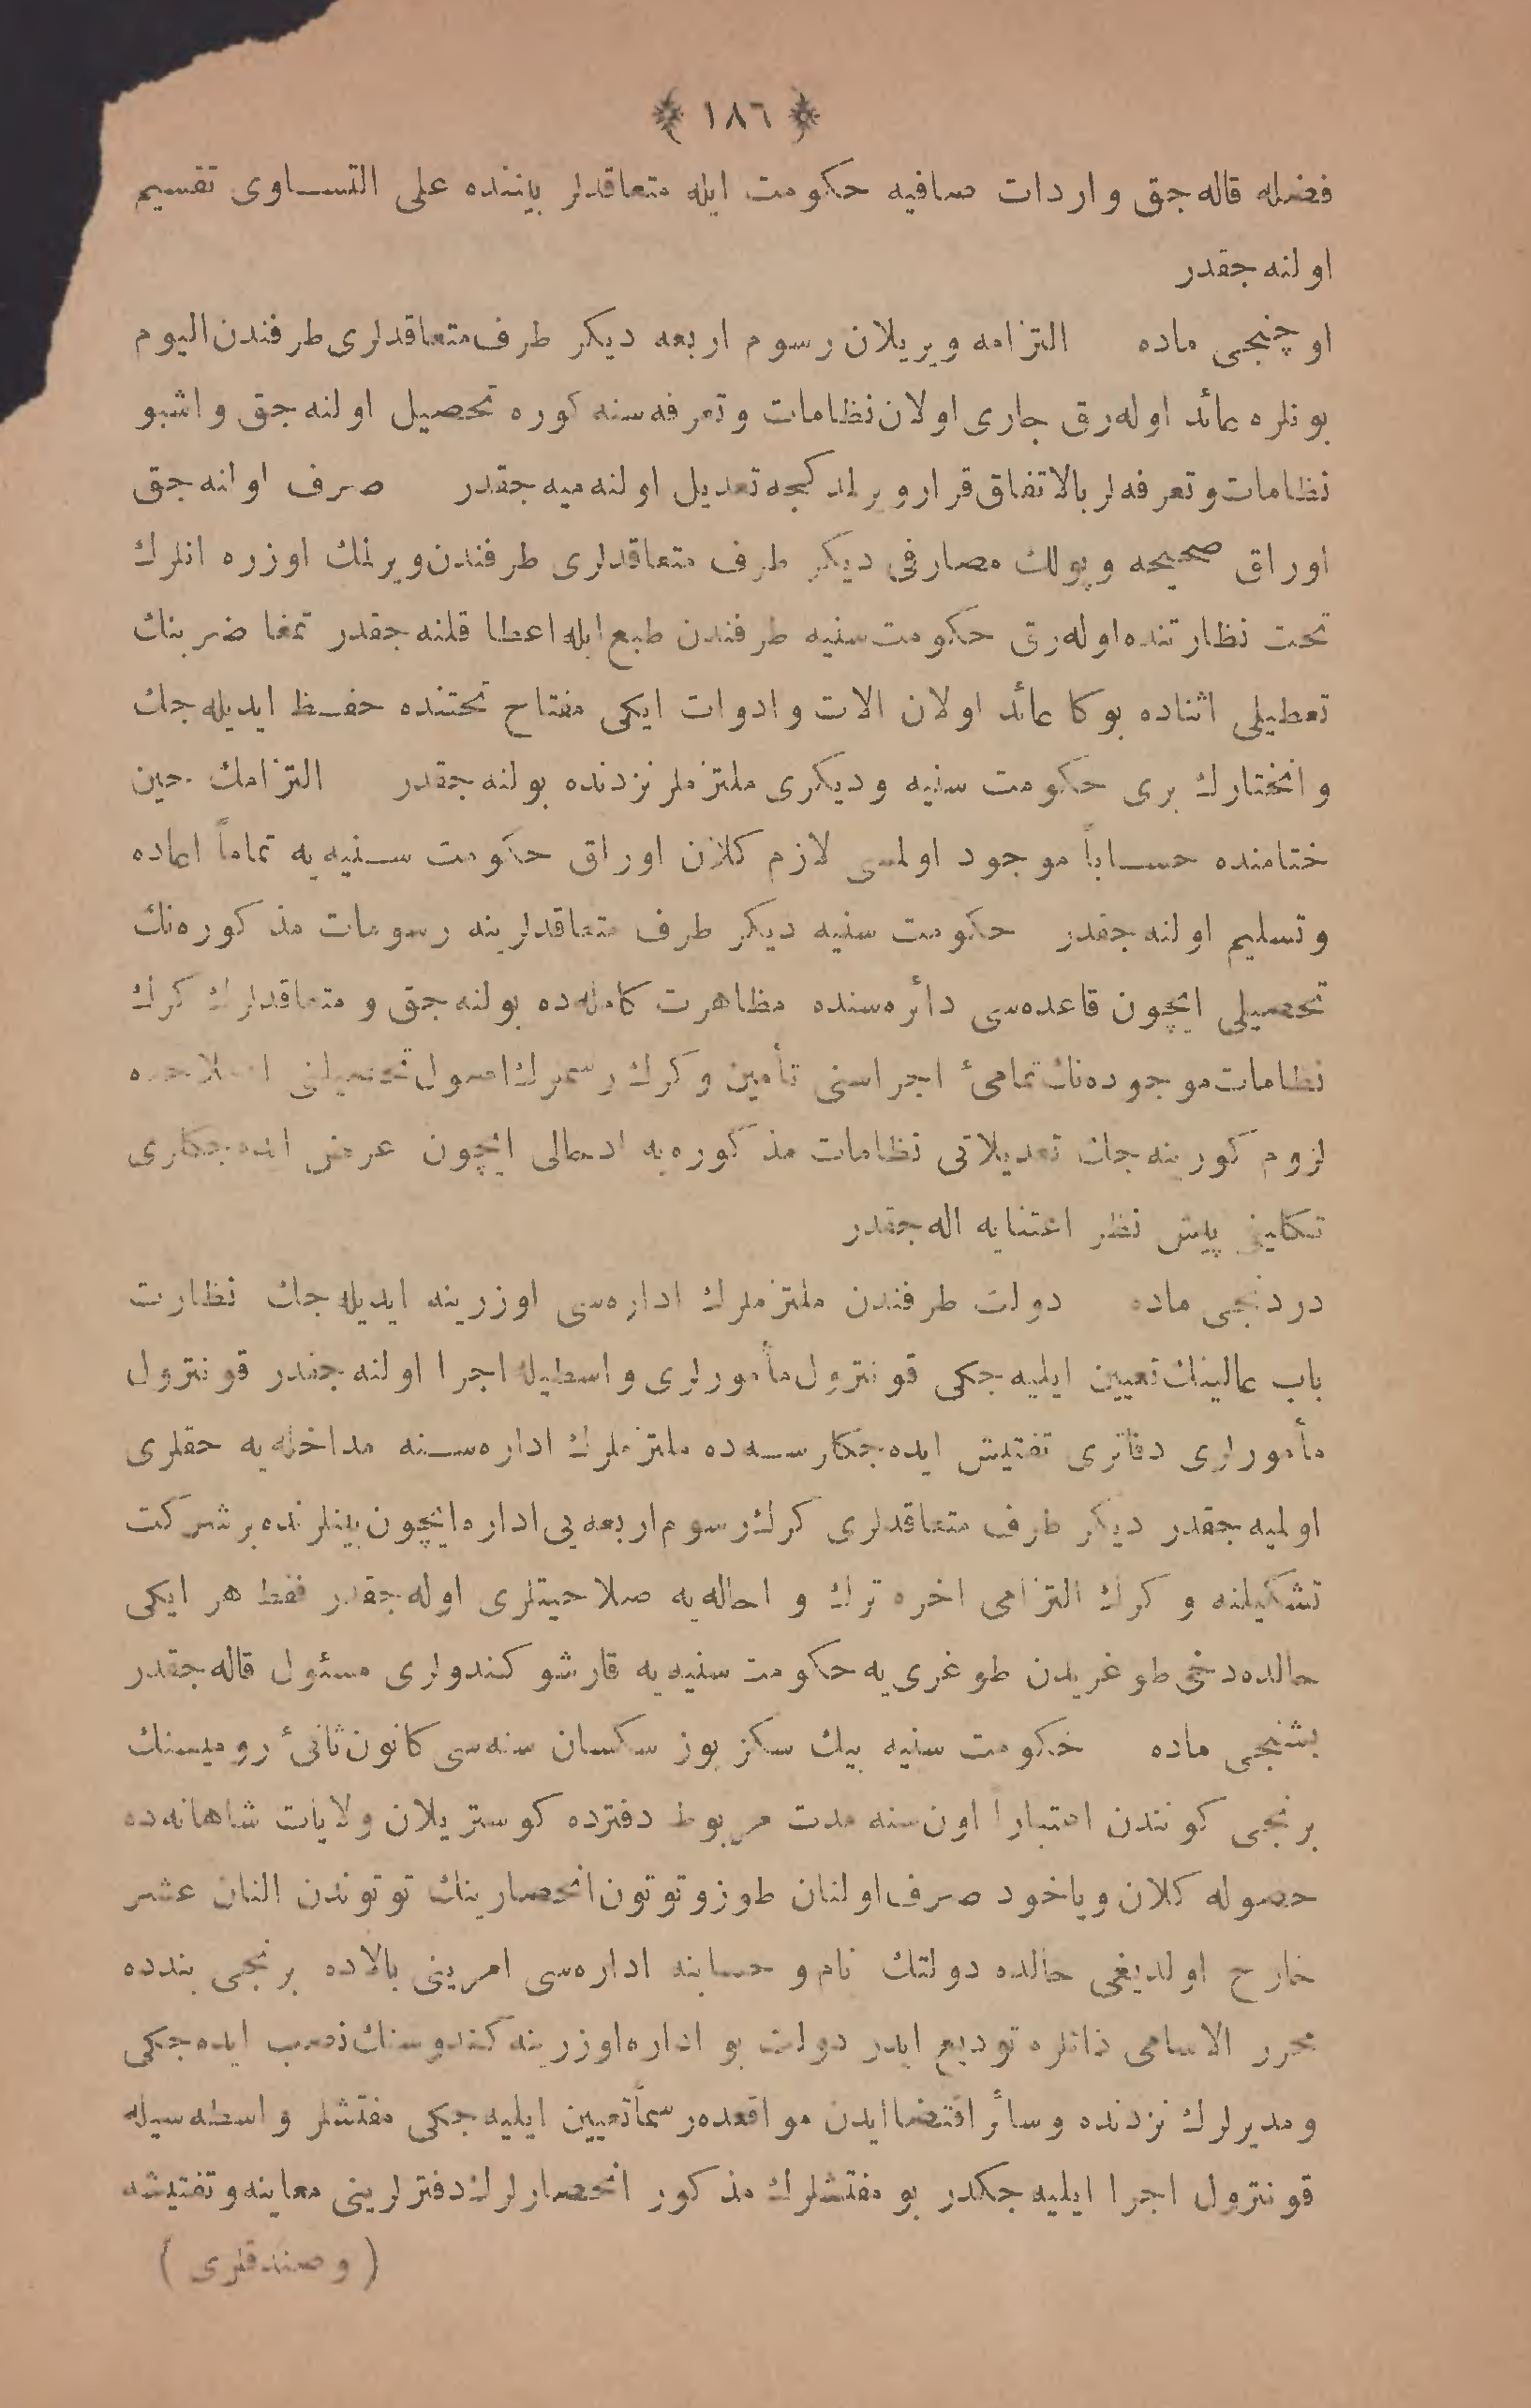 ١٨٦
فضله قاله‌جق واردات صافیه حکومت ایله متعاقدلر بیننده علی التساوی تقسیم
اولنه‌جقدر
اوچنجی ماده التزامه ویریلان رسوم اربعه دیکر طرف متعاقدلری طرفندن الیوم
بونلره عائد اوله‌رق جاری اولان نظامات وتعرفه‌سنه کوره تحصیل اولنه‌جق واشبو
نظامات وتعرفه‌لر بالاتفاق قرار ویرلدکجه تعدیل اولنه‌میه‌جقدر صرف اولنه‌جق
اوراق صحیحه وپولك مصارفی دیکر طرف متعاقدلری طرفندن ویرلمك اوزره انلرك
تحت نظارتنده اوله‌رق حکومت سنیه طرفندن طبع ایله اعطا قلنه‌جقدر تمغا ضربنك
تعطیلی اثناده بوکا عائد اولان الات وادوات ایکی مفتاح تحتنده حفظ ایدیله‌جك
وانختارك بری حکومت سنیه ودیکری ملتزملر نزدنده بولنه‌جقدر التزامك حین
ختامنده حساباً موجود اولمسی لازم کلان اوراق حکومت سنیه‌یه تماماً اعاده
وتسلیم اولنه‌جقدر حکومت سنیه دیکر طرف متعاقدلرینه رسومات مذکوره‌نك
تحصیلی ایچون قاعده‌سی دائره‌سنده مظاهرت کامله‌ده بولنه‌جق و متعاقدلرك کرك
نظامات موجوده‌نك تمامیٔ اجراسنی تأمین وکرك رسملرك اصول تحصیلنی اصلاحده
لزوم کورینه‌جك تعدیلاتی نظامات مذکوره‌یه ادخالی ایچون عرض ایده‌جکلری
تکالیفی پیش نظر اعتنایه اله‌جقدر
دردنجی ماده دولت طرفندن ملتزملرك اداره‌سی اوزرینه ایدیله‌جك نظارت
باب عالینك تعیین ایلیه‌جکی قونترول مأمورلری واسطیله اجرا اولنه‌جقدر قونترول
مأمورلری دفاتری تفتیش ایده‌جکلرسه‌ده ملتزملرك اداره‌سنه مداخله‌یه حقلری
اولمیه‌جقدر دیکر طرف متعاقدلری کرك رسوم اربعه‌یی اداره ایچون بینلرنده بر شرکت
تشکیلنه و کرك التزامی اخره ترك و احاله‌یه صلاحیتلری اوله‌جقدر فقط هر ایکی
حالده‌دخی طوغریدن طوغری‌یه حکومت سنیه‌یه قارشو کندولری مسئول قاله‌جقدر
بشنجی ماده حکومت سنیه بیك سکز یوز سکسان سنه‌سی کانون ثانیٔ رومیسنك
برنجی کوندن اعتبارا اون سنه مدت مربوط دفترده کوستریلان ولایات شاهانه‌ده
حصوله کلان ویاخود صرف اولنان طوز وتوتون انحصارینك توتوندن النان عشر
خارج اولدیغی حالده دولتك نام و حسابنه اداره‌سی امرینی بالاده برنجی بندده
محرر الاسامی ذاتلره تودیع ایدر دولت بو اداره اوزرینه کندوسنك نصب ایده‌جکی
ومدیرلرك نزدنده وسائر اقتضا ایدن مواقعده رسماً تعیین ایلیه‌جکی مفتشلر واسطه‌سیله
قونترول اجرا ایلیه‌جکدر بو مفتشلرك مذکور انحصارلرك دفترلرینی معاینه وتفتیشه
( وصندقلری )